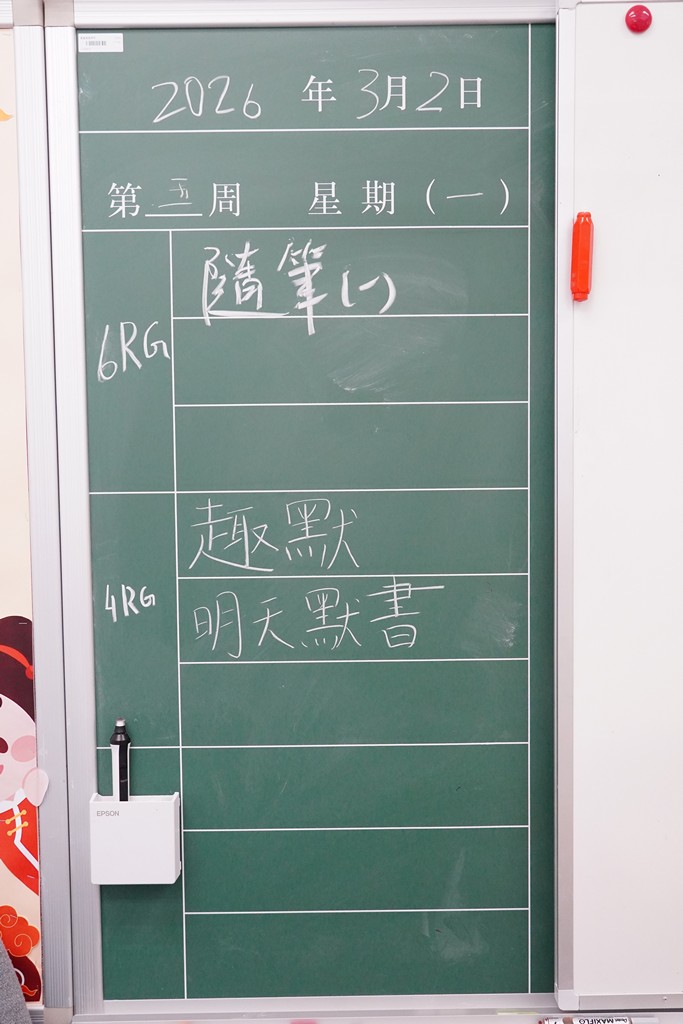 2026 年 3月2日
第五周 星期(一)
隨筆(一)
6RG
趣默
明天默書
4RG
EPSON